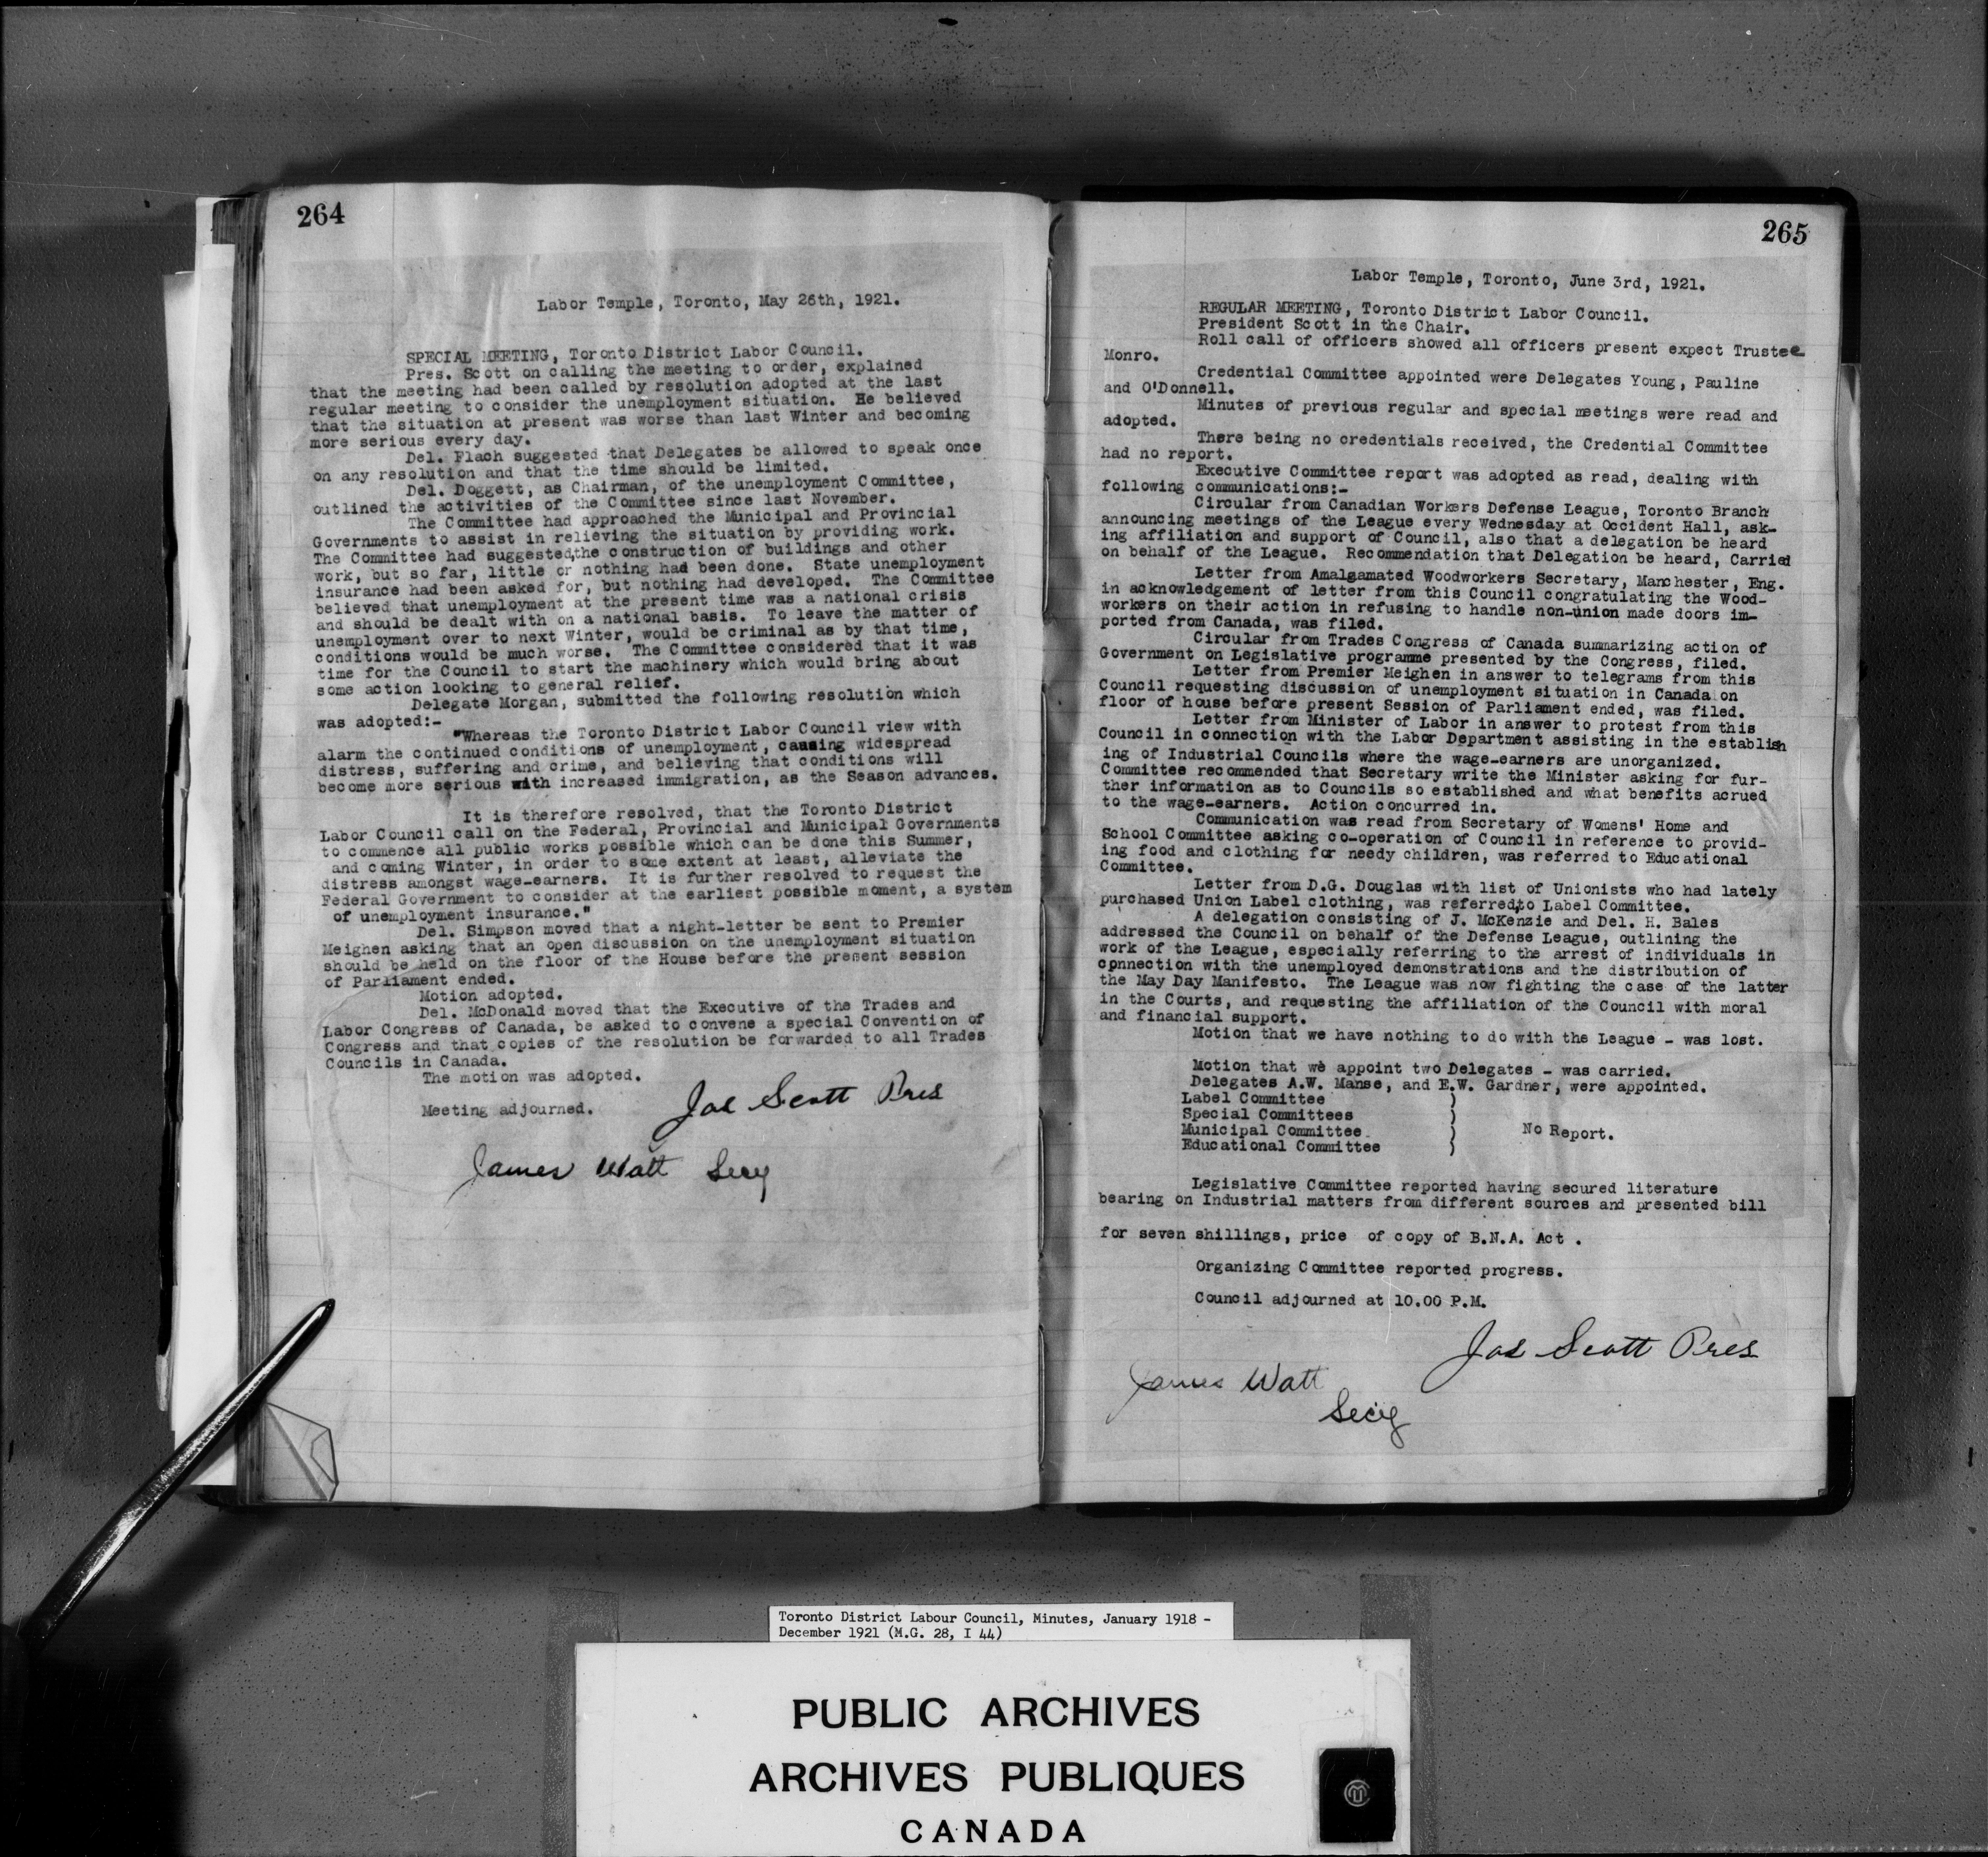 264
Labor Temple, Toronto, May 26th, 1921.
SPECIAL MEETING, Toronto District Labor Council.
Pres. Scott on calling the meeting to order, explained
that the meeting had been called by resolution adopted at the last
regular meeting to consider the unemployment situation. He believed
that the situation at present was worse than last Winter and becoming
more serious every day.
Del. Flach suggested that Delegates be allowed to speak once
on any resolution and that the time should be limited.
Del. Doggett, as Chairman, of the unemployment Committee,
outlined the activities of the Committee since last November.
The Committee had approached the Municipal and Provincial
Governments to assist in relieving the situation by providing work.
The Committee had suggested,the construction of buildings and other
work, but so far, little or nothing had been done. State unemployment
insurance had been asked for, but nothing had developed. The Committee
believed that unemployment at the present time was a national crisis
and should be dealt with on a national basis. To leave the matter of
unemployment over to next Winter, would be criminal as by that time,
conditions would be much worse. The Committee considered that it was
time for the Council to start the machinery which would bring about
some action looking to general relief.
Delegate Morgan, submitted the following resolution which
was adopted:-
"Whereas the Toronto District Labor Council view with
alarm the continued conditions of unemployment, causing widespread
distress, suffering and crime, and believing that conditions will
become more serious with increased immigration, as the Season advances.
It is therefore resolved, that the Toronto District
Labor Council call on the Federal, Provincial and Municipal Governments
to commence all public works possible which can be done this Summer,
and coming Winter, in order to some extent at least, alleviate the
distress amongst wage-earners. It is further resolved to request the
Federal Government to consider at the earliest possible moment, a system
of unemployment insurance."
Del. Simpson moved that a night-letter be sent to Premier
Meighen asking that an open discussion on the unemployment situation
should be held on the floor of the House before the present session
of Parliament ended.
Motion adopted.
Del. McDonald moved that the Executive of the Trades and
Labor Congress of Canada, be asked to convene a special Convention of
Congress and that copies of the resolution be forwarded to all Trades
Councils in Canada.
The motion was adopted.
Meeting adjourned. Jas Scott Pres
James Watt Secy
265
Labor Temple, Toronto, June 3rd, 1921.
REGULAR MEETING, Toronto District Labor Council.
President Scott in the Chair.
Roll call of officers showed all officers present expect Trustee
Monro.
Credential Committee appointed were Delegates Young, Pauline
and O'Donnell.
Minutes of previous regular and special meetings were read and
adopted.
There being no credentials received, the Credential Committee
had no report.
Executive Committee report was adopted as read, dealing with
following communications:-
Circular from Canadian Workers Defense League, Toronto Branch
announcing meetings of the League every Wednesday at Occident Hall, ask-
ing affiliation and support of Council, also that a delegation be heard
on behalf of the League. Recommendation that Delegation be heard, Carried
Letter from Amalgamated Woodworkers Secretary, Manchester, Eng.
in acknowledgement of letter from this Council congratulating the Wood-
workers on their action in refusing to handle non-union made doors im-
ported from Canada, was filed.
Circular from Trades Congress of Canada summarizing action of
Government on Legislative programme presented by the Congress, filed.
Letter from Premier Meighen in answer to telegrams from this
Council requesting discussion of unemployment situation in Canada on
floor of house before present Session of Parliament ended, was filed.
Letter from Minister of Labor in answer to protest from this
Council in connection with the Labor Department assisting in the establish
ing of Industrial Councils where the wage-earners are unorganized.
Committee recommended that Secretary write the Minister asking for fur-
ther information as to Councils so established and what benefits acrued
to the wage-earners. Action concurred in.
Communication was read from Secretary of Womens' Home and
School Committee asking co-operation of Council in reference to provid-
ing food and clothing for needy children, was referred to Educational
Committee.
Letter from D.G. Douglas with list of Unionists who had lately
purchased Union Label clothing, was referred to Label Committee.
A delegation consisting of J. McKenzie and Del. H. Bales
addressed the Council on behalf of the Defense League, outlining the
work of the League, especially referring to the arrest of individuals in
connection with the unemployed demonstrations and the distribution of
the May Day Manifesto. The League was now fighting the case of the latter
in the Courts, and requesting the affiliation of the Council with moral
and financial support.
Motion that we have nothing to do with the League - was lost.
Motion that we appoint two Delegates - was carried.
Delegates A.W. Manse, and E.W. Gardner, were appointed.
Label Committee )
Special Committees )
Municipal Committee ) No Report.
Educational Committee )
Legislative Committee reported having secured literature
bearing on Industrial matters from different sources and presented bill
for seven shillings, price of copy of B.N.A. Act .
Organizing Committee reported progress.
Council adjourned at 10.00 P.M.
Jas Scott Pres
James Watt
Sec'y
Toronto District Labour Council, Minutes, January 1918 -
December 1921 (M.G. 28, I 44)
PUBLIC ARCHIVES
ARCHIVES PUBLIQUES
CANADA